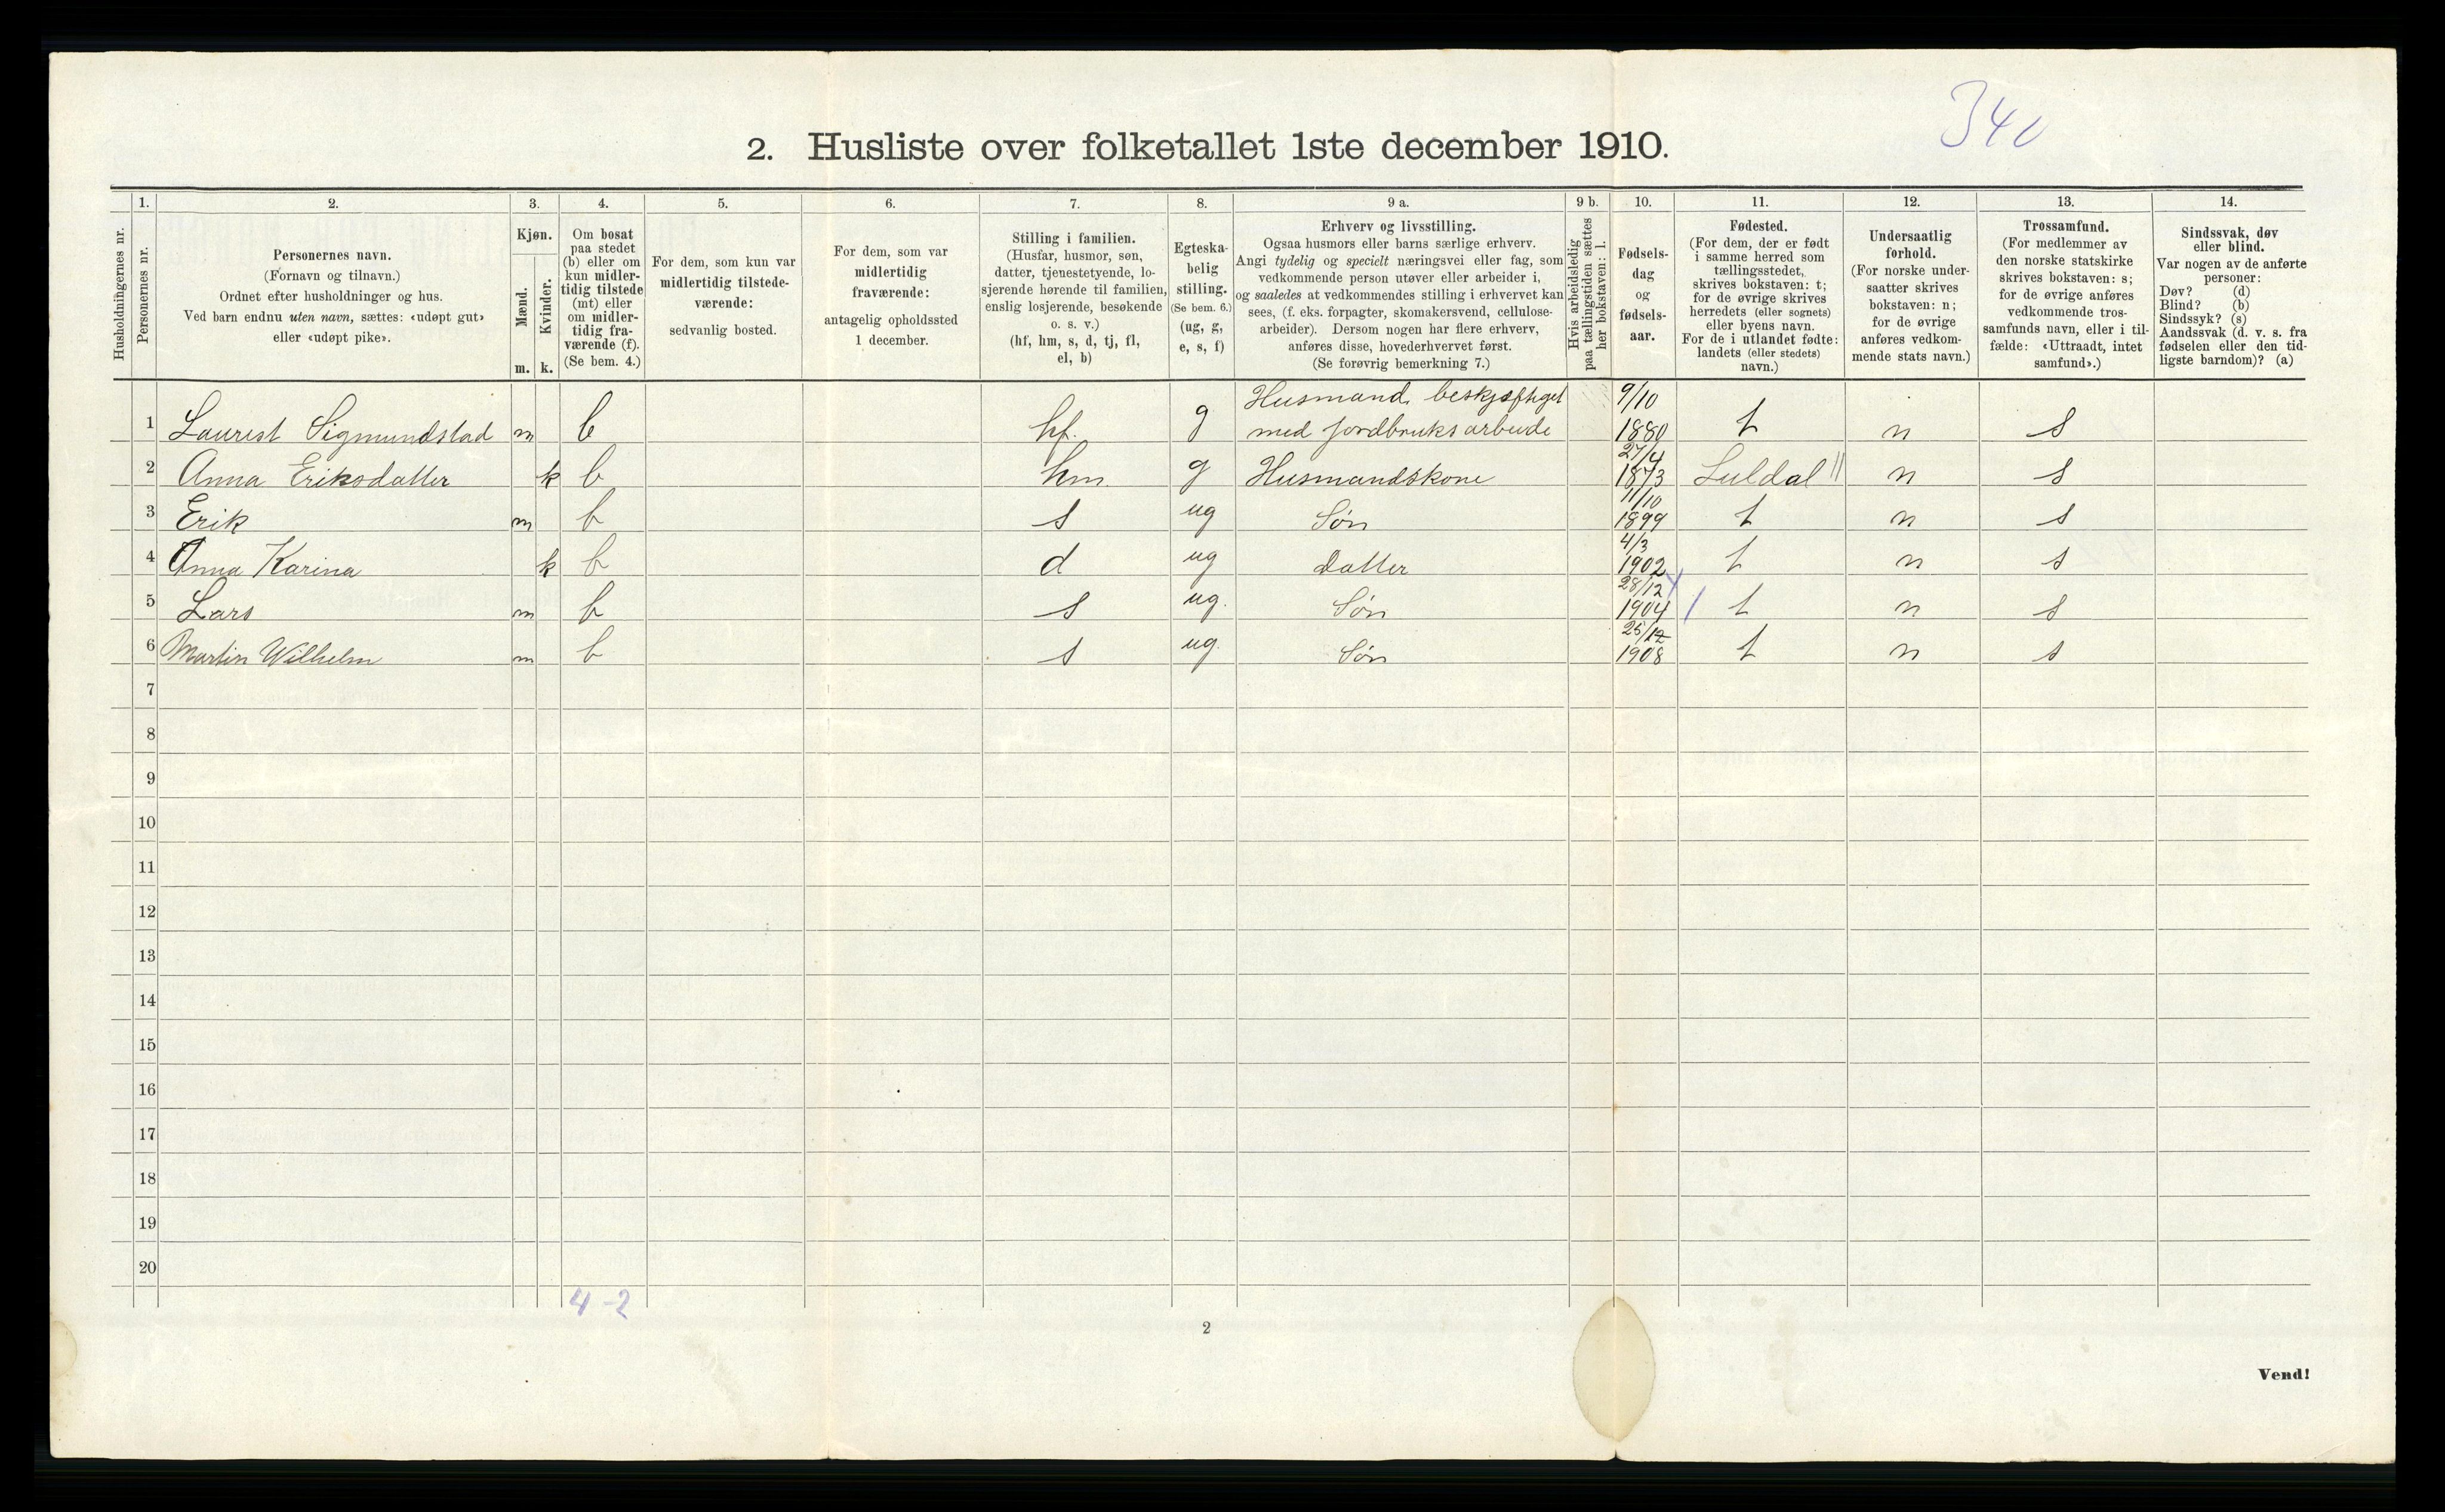 340
2. Husliste over folketallet 1ste december 1910.
Husholdningernes nr.
1.
Personernes nr.
2.
Personernes navn.
(Fornavn og tilnavn.)
Ordnet efter husholdninger og hus.
Ved barn endnu uten navn, sættes: «udøpt gut»
eller «udøpt pike».
3.
Kjøn.
Mænd.
Kvinder.
m. k.
4.
Om bosat
paa stedet
(b) eller om
kun midler-
tidig tilstede
(mt) eller
om midler-
tidig fra-
værende (f).
(Se bem. 4.)
5.
For dem, som kun var
midlertidig tilstede-
værende:
sedvanlig bosted.
6.
For dem, som var
midlertidig
fraværende:
antagelig opholdssted
1 december.
7.
Stilling i familien.
(Husfar, husmor, søn,
datter, tjenestetyende, lo-
sjerende hørende til familien,
enslig losjerende, besøkende
o. s. v.)
(hf, hm, s, d, tj, fl,
el, b)
8.
Egteska-
belig
stilling.
(Se bem. 6.)
(ug, g,
e, s, f)
9 a.
Erhverv og livsstilling.
Ogsaa husmors eller barns særlige erhverv.
Angi tydelig og specielt næringsvei eller fag, som
vedkommende person utøver eller arbeider i,
og saaledes at vedkommendes stilling i erhvervet kan
sees, (f. eks. forpagter, skomakersvend, cellulose-
arbeider). Dersom nogen har flere erhverv,
anføres disse, hovederhvervet først.
(Se forøvrig bemerkning 7.)
9 b.
Hvis arbeidsledig
paa tællingstiden sættes
her bokstaven: l.
10.
Fødsels-
dag
og
fødsels-
aar.
11.
Fødested.
(For dem, der er født
i samme herred som
tællingsstedet,
skrives bokstaven: t;
for de øvrige skrives
herredets (eller sognets)
eller byens navn.
For de i utlandet fødte:
landets (eller stedets)
navn.)
12.
Undersaatlig
forhold.
(For norske under-
saatter skrives
bokstaven: n;
for de øvrige
anføres vedkom-
mende stats navn.)
13.
Trossamfund.
(For medlemmer av
den norske statskirke
skrives bokstaven: s;
for de øvrige anføres
vedkommende tros-
samfunds navn, eller i til-
fælde: «Uttraadt, intet
samfund».)
14.
Sindssvak, døv
eller blind.
Var nogen av de anførte
personer:
Døv? (d)
Blind? (b)
Sindssyk? (s)
Aandssvak (d. v. s. fra
fødselen eller den tid-
ligste barndom)? (a)
Husmand, beskjæftiget 9/10
1 Laurist Sigmundstad m b hf. g med jordbruksarbeide 1880 t n s
27/4
2 Anna Eriksdatter k b hm g Husmandskone 1873 Suldal " n s
11/10
3 Erik m b s ug Søn 1899 t n s
4/3
4 Anna Karina k b d ug Datter 1902 t n s
28/12
5 Lars m b s ug. Søn 1904 t n s
25/12
6 Martin Wilhelm m b s ug. Søn 1908 t n s
7
8
9
10
11
12
13
14
15
16
17
18
19
20
4-2
2
Vend!